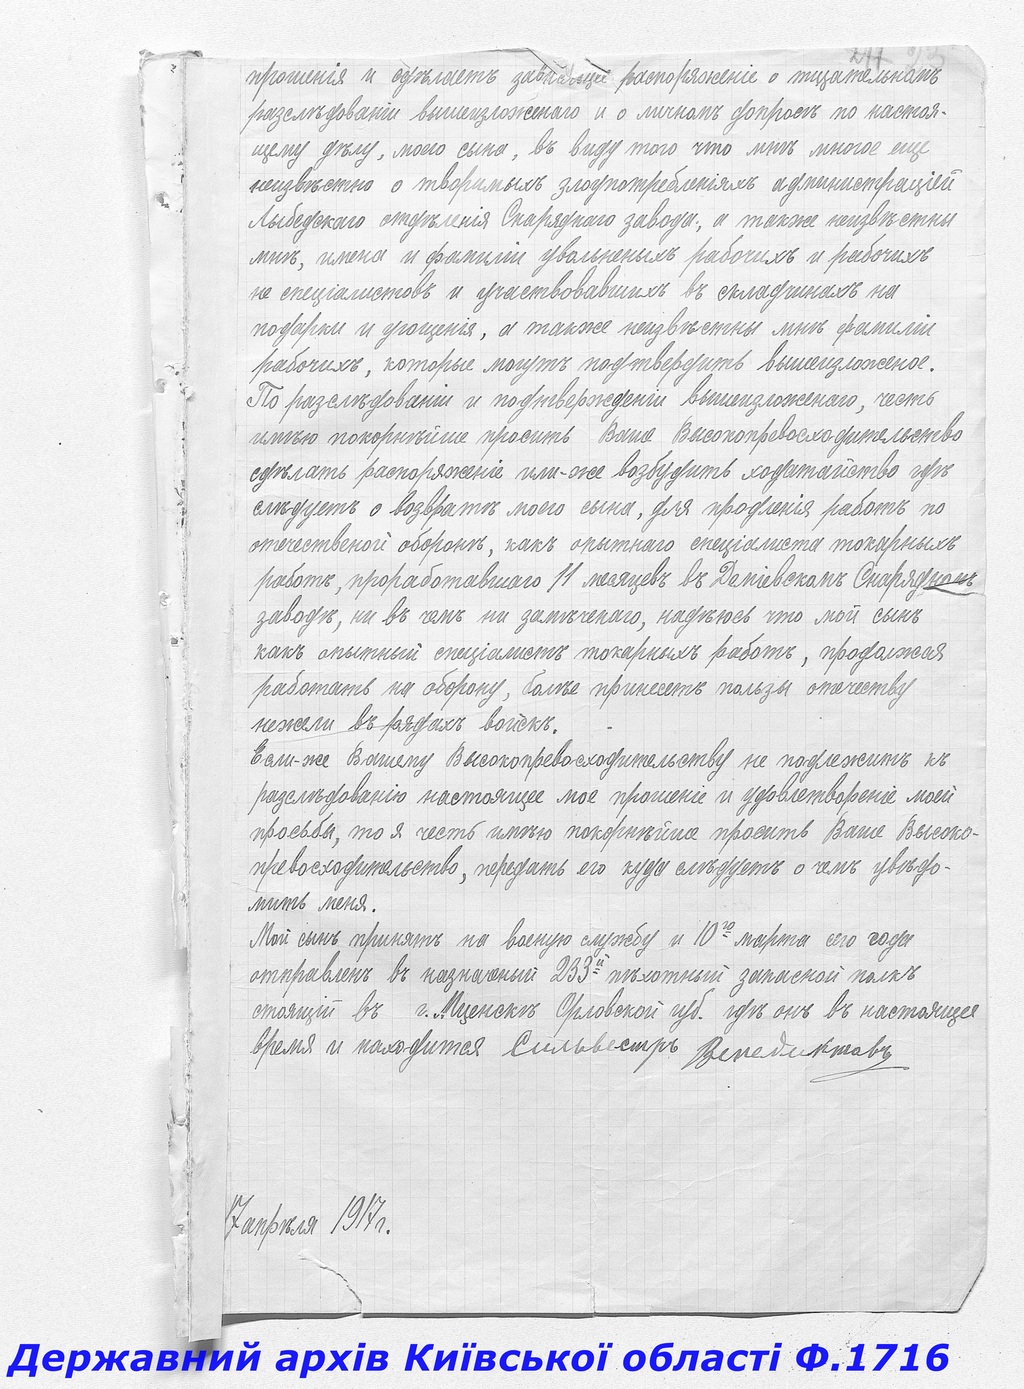 прошенія и сдѣлаетъ распоряженіе о тщательномъ
разслѣдованіи вышеизложенаго и о личномъ допросѣ по настоя-
щему дѣлу, моего сына, въ виду того что мнѣ многое еще
неизвѣстно о творимыхъ злоупотребленіяхъ администраціей
Лыбедскаго отдѣленія Снаряднаго завода, а также неизвѣстны
мнѣ, имена и фамиліи увольненыхъ рабочихъ и рабочихъ
не спеціалистовъ и участвовавшихъ въ складчинахъ на
подарки и угощенія, а также неизвѣстны мнѣ фамиліи
рабочихъ, которые могутъ подтвердить вышеизложеное.
По разслѣдованіи и подтвержденіи вышеизложенаго, честь
имѣю покорнѣйше просить Ваше Высокопревосходительство
сдѣлать распоряженіе или-же возбудить ходатайство гдѣ
слѣдуетъ о возвратѣ моего сына, для продленія работъ по
отечественой оборонѣ, какъ опытнаго спеціалиста токарныхъ
работъ, проработавшаго 11 месяцевъ въ Деміевскомъ Снарядномъ
заводѣ, ни въ чемъ на замѣченаго, надѣюсь что мой сынъ
какъ опытный спеціалистъ токарныхъ работъ, продолжая
работать на оборону, болѣе принесетъ пользы отечеству
нежели въ рядахъ войскъ.
Если-же Вашему Высокопревосходительству не подлежитъ къ
разслѣдованію настоящее мое прошеніе и удовлетвореніе моей
просьбы, то я честь имѣю покорнѣйше просить Ваше Высоко-
превосходительство, передать его куда слѣдуетъ о чемъ увѣдо-
мить меня.
Мой сынъ принятъ на военую службу и 10го марта сего года
отправленъ въ назначеный 233й пѣхотный запасной полкъ
стоящій въ г. Мценскѣ Орловской губ. гдѣ онъ въ настоящее
время и находится Сильвестръ Венедиктовъ
17 апрѣля 1917 г.
Державний архів Київської області Ф.1716